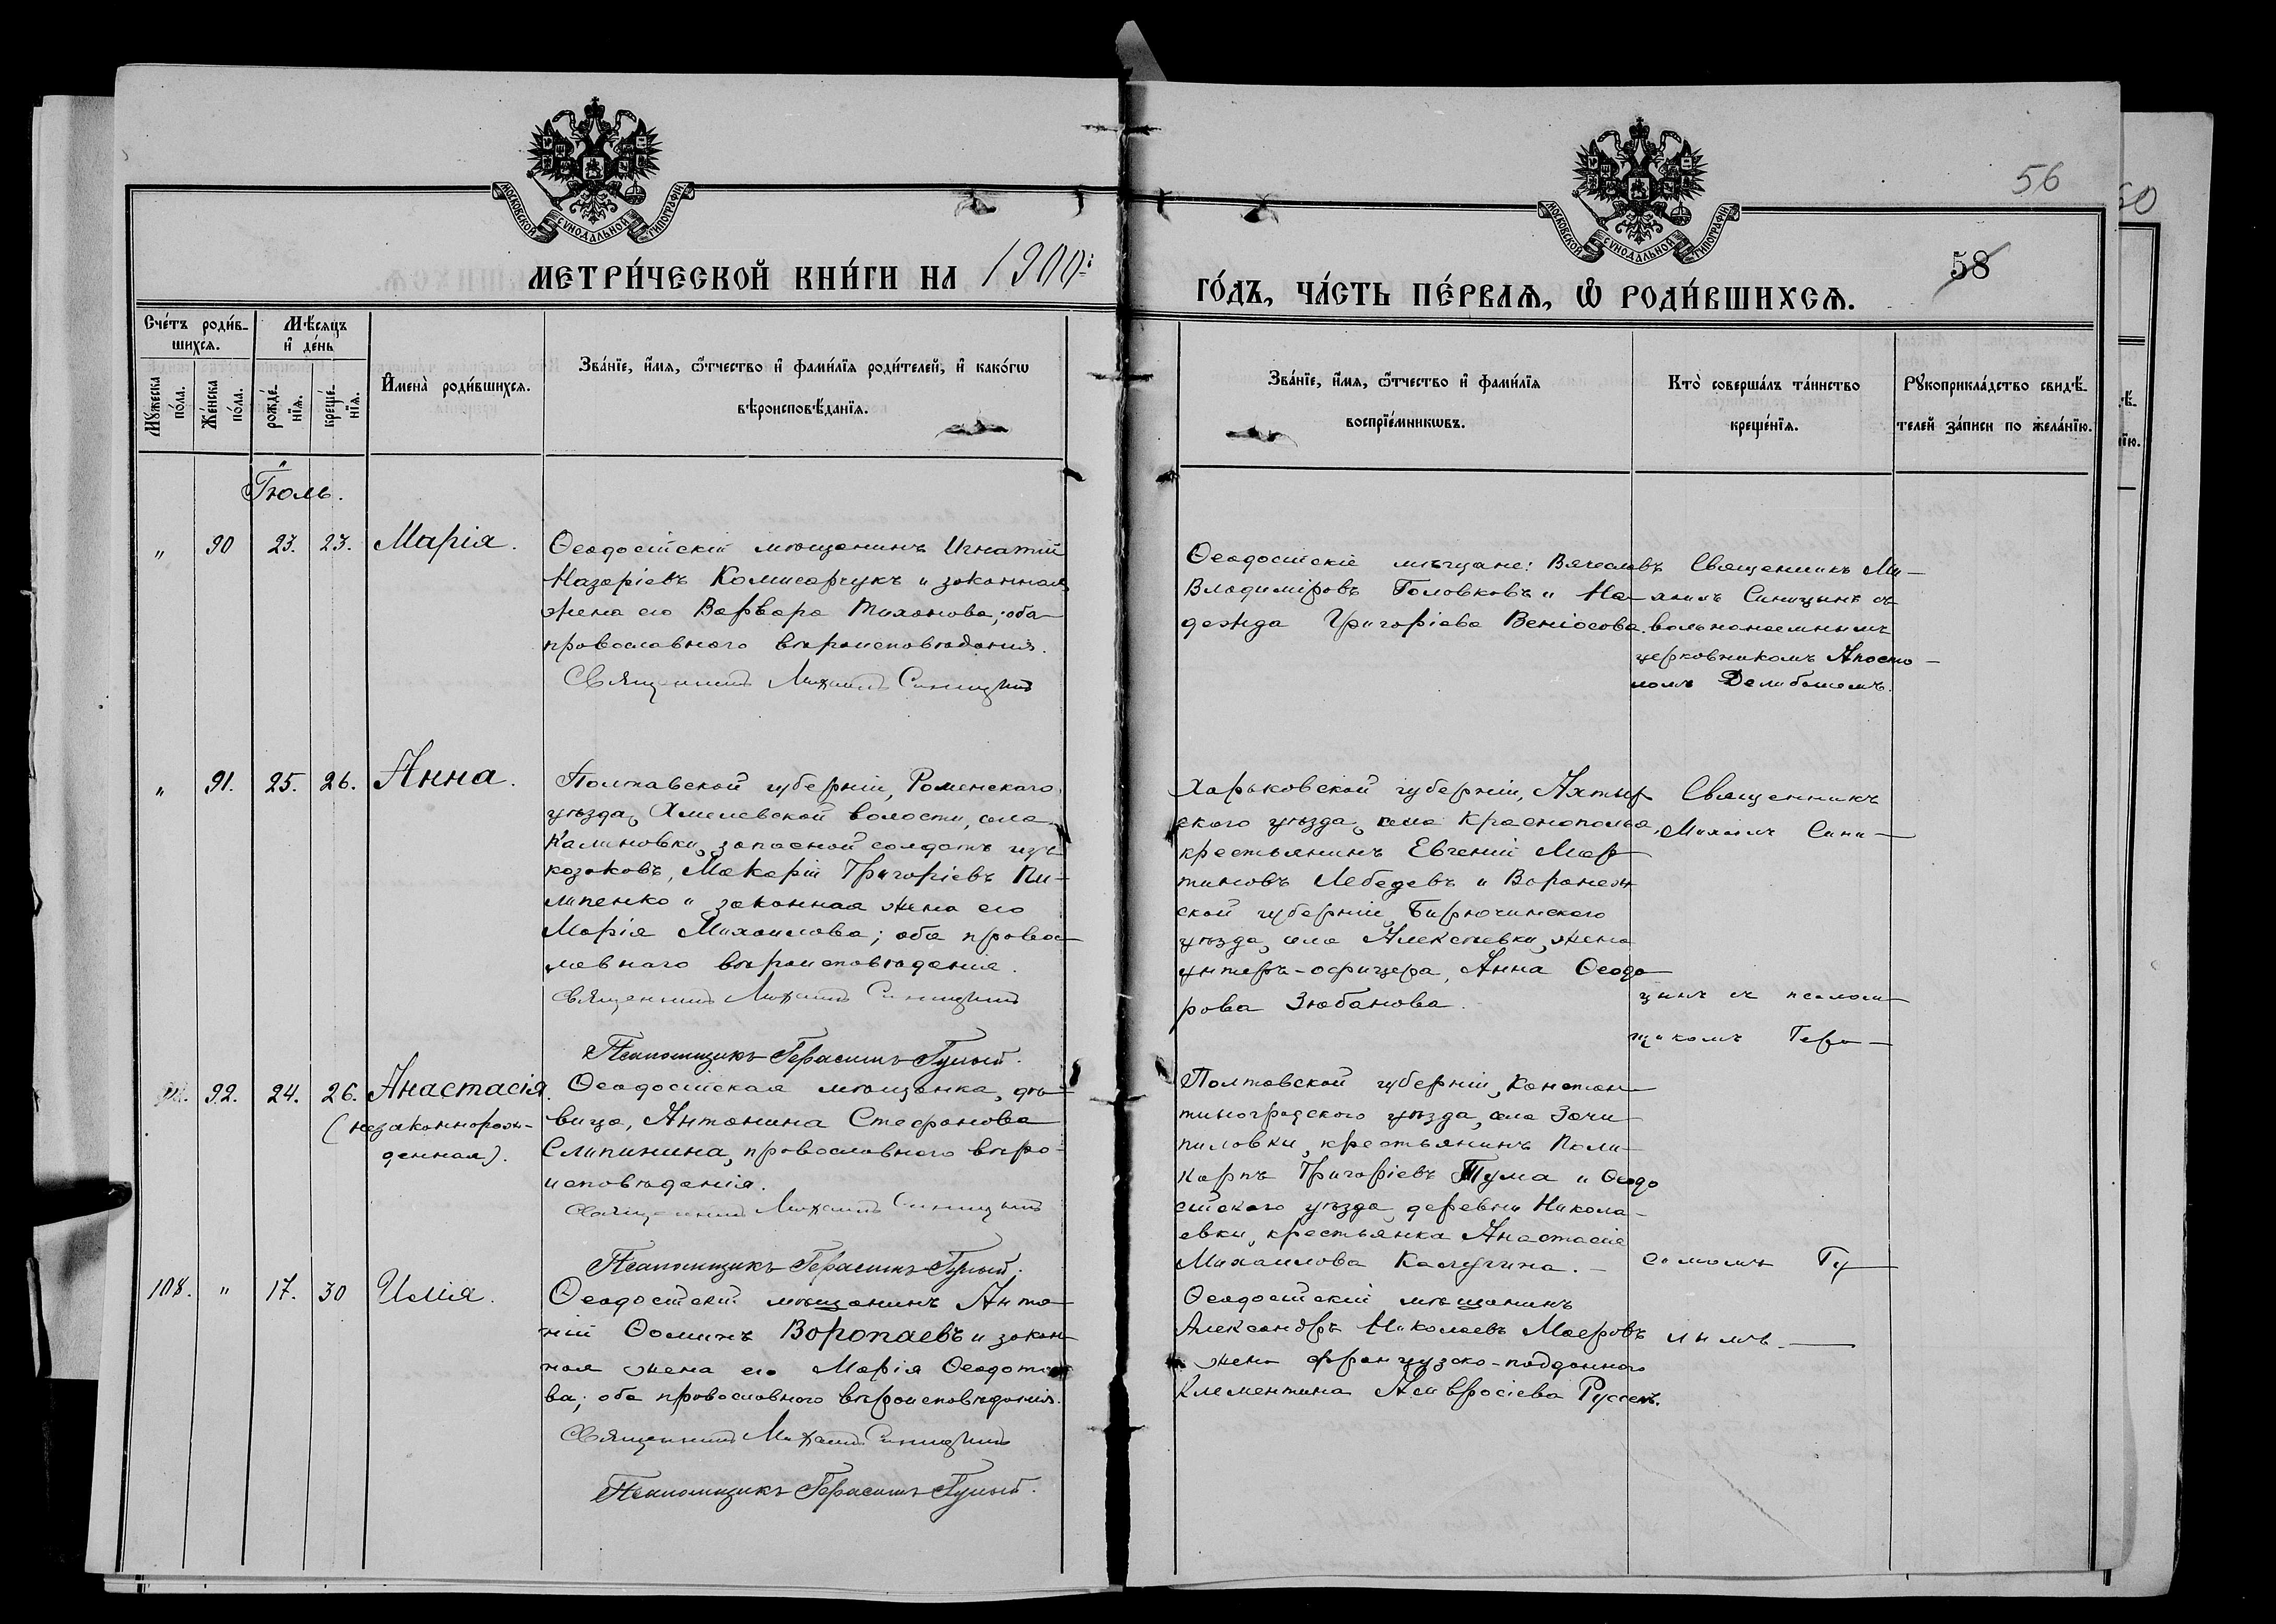 56
60
МОСКОВСКОЙ СУНОДАЛЬНОЙ ТИПОГРАФІИ
МОСКОВСКОЙ СУНОДАЛЬНОЙ ТИПОГРАФІИ
58
МЕТРИ́ЧЕСКОЙ КНИ́ГИ НА 1900:
ГО́ДЪ, ЧА́СТЬ ПЕ́РВАѦ, Ѽ РОДИ́ВШИХСѦ.
Сче́тъ роди́в-
шихсѧ.
Мѣ́сяцъ
и҆ де́нь
Мꙋ́жеска
по́ла.
Же́нска
по́ла.
рожде́-
нїѧ.
креще́-
нїѧ.
И҆мена̀ роди́вшихсѧ.
Зва́нїе, и҆́мѧ, ѻ҆́тчество и҆ фами́лїѧ роди́телей, и҆ како́гѡ
вѣроисповѣ́данїѧ.
Зва́нїе, и҆́мѧ, ѻ҆́тчество и҆ фами́лїѧ
воспрїе́мникѡвъ.
Кто̀ соверша́лъ та́инство
креще́нїѧ.
Рꙋкоприкла́дство свидѣ́-
телей за́писи по жела́нїю.
Іюль.
" 90 23. 23. Марія.
Ѳеодосійскій мѣщанинъ Игнатій
Назаріевъ Комисарчукъ и законная
жена его Варвара Тихонова; оба
православнаго вѣроисповѣданія.
Священникъ Михаилъ Синицынъ
Ѳеодосійскіе мѣщане: Вячеславъ
Владиміровъ Головковъ и На-
дежда Григоріева Веніосова.
Священникъ Ми-
хаилъ Синицынъ съ
вольнонаемнымъ
церковникомъ Апосто-
ломъ Делибашемъ.
" 91. 25. 26. Анна.
Полтавской губерніи, Роменскаго
уѣзда, Хмелевской волости, села
Калиновки, запасной солдатъ изъ
козаковъ, Макарій Григоріевъ Пи-
липенко и законная жена его
Марія Михаилова; оба правос-
лавнаго вѣроисповѣданія.
Священникъ Михаилъ Синицынъ
Псаломщикъ Герасимъ Гулый.
Харьковской губерніи, Ахтыр-
скаго уѣзда, села Краснополья,
крестьянинъ Евгеній Мар-
тиновъ Лебедевъ и Воронеж-
ской губерніи, Бирючинскаго
уѣзда, села Алексѣевки, жена
унтеръ-офицера, Анна Ѳеодо-
рова Зюбанова.
Священникъ
Михаилъ Сини-
цынъ съ псалом-
щикомъ Гера-
92. 24. 26. Анастасія.
(незаконнорож-
денная).
Ѳеодосійская мѣщанка, дѣ-
вица, Антонина Стефанова
Слипинина, православнаго вѣро-
исповѣданія.
Священникъ Михаилъ Синицынъ
Псаломщикъ Герасимъ Гулый.
Полтавской губерніи, Констан-
тиноградскаго уѣзда, села Зачи-
пиловки, крестьянинъ Поли-
карпъ Григоріевъ Тума и Ѳеодо-
сійскаго уѣзда, деревни Никола-
евки, крестьянка Анастасія
Михаилова Калугина. —
симомъ Гу-
108. " 17. 30 Илія.
Ѳеодосійскій мѣщанинъ Анто-
ній Ѳоминъ Воропаевъ и закон-
ная жена его Марія Ѳеодото-
ва; оба православнаго вѣроисповѣданія.
Священникъ Михаилъ Синицынъ
Псаломщикъ Герасимъ Гулый.
Ѳеодосійскій мѣщанинъ
Александръ Николаевъ Маеровъ
и жена французско-подданнаго
Клементина Амвросіева Руссенъ.
лымъ. —